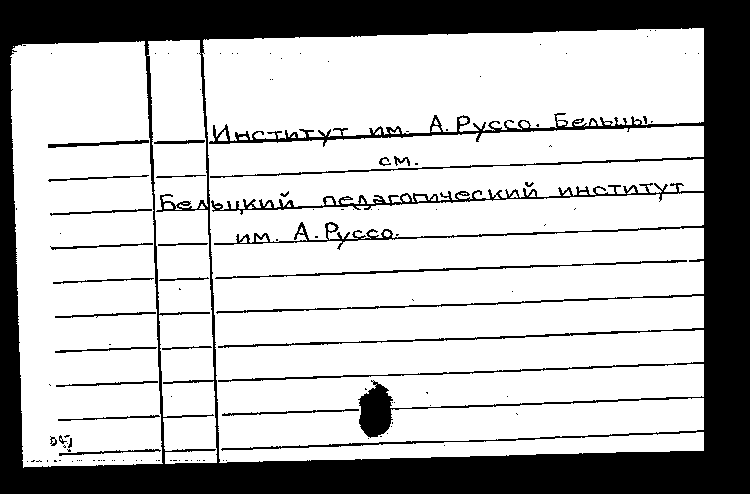 Институт им. А. Руссо. Бельцы.
см.
Бельцкий педагогический институт
им. А. Руссо.